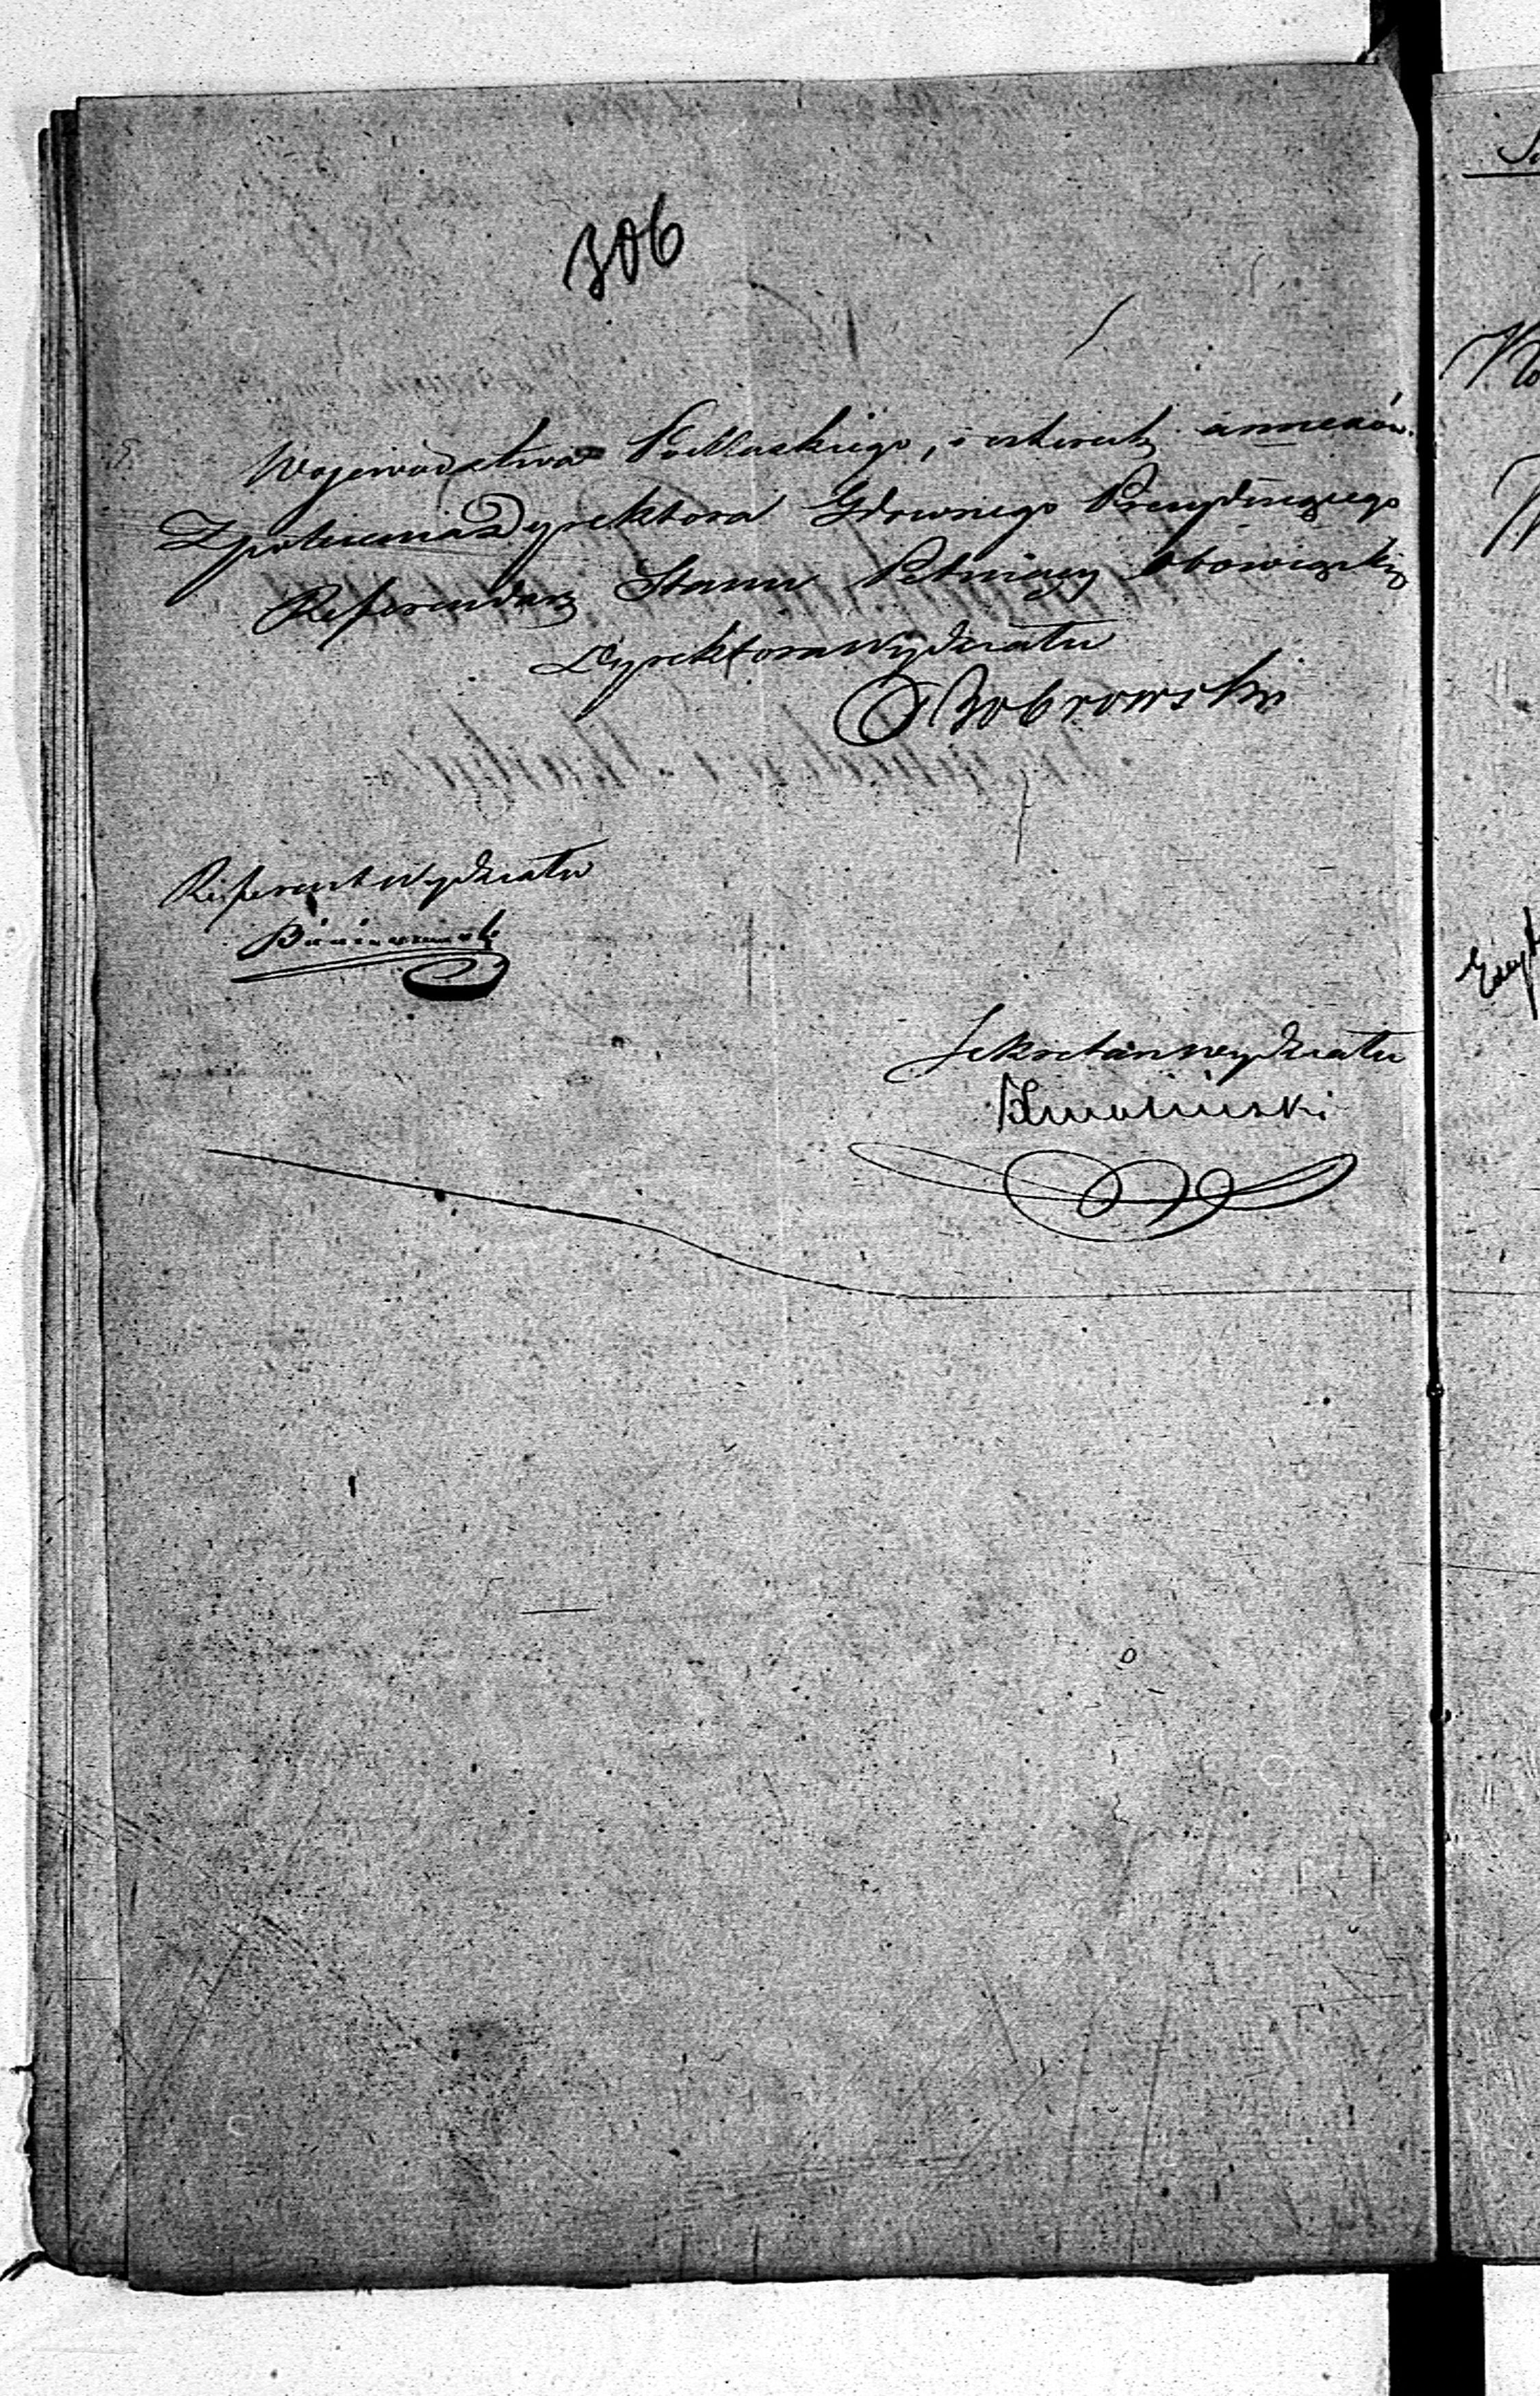 306
Województwa Podlaskiego, i czterech annexów.
Z polecenia Dyrektora Głownego Prezyduiącego
Referendarz Stanu Pełniący Obowiązki
Dyrektora Wydziału
Bobrowski
Referent Wydziału
Sekretarz Wydziału